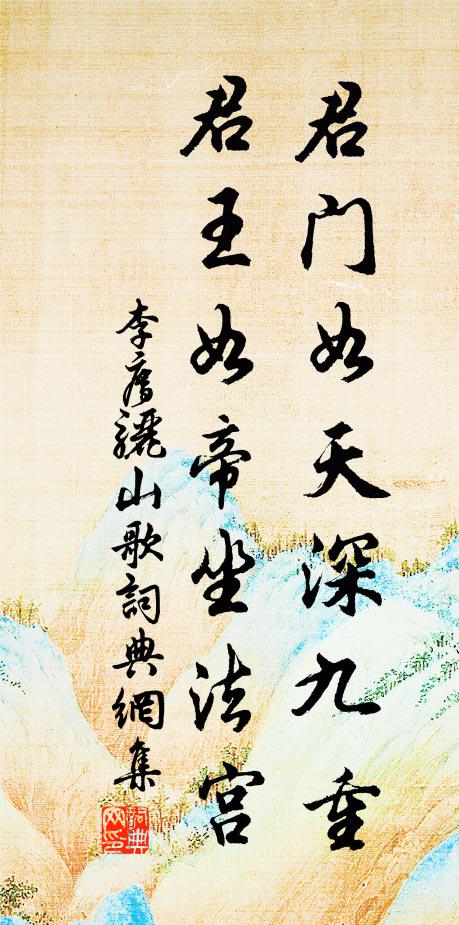 君门如天深九重
君王如帝坐法宫
李廌骊山歌詞典網集
詞典